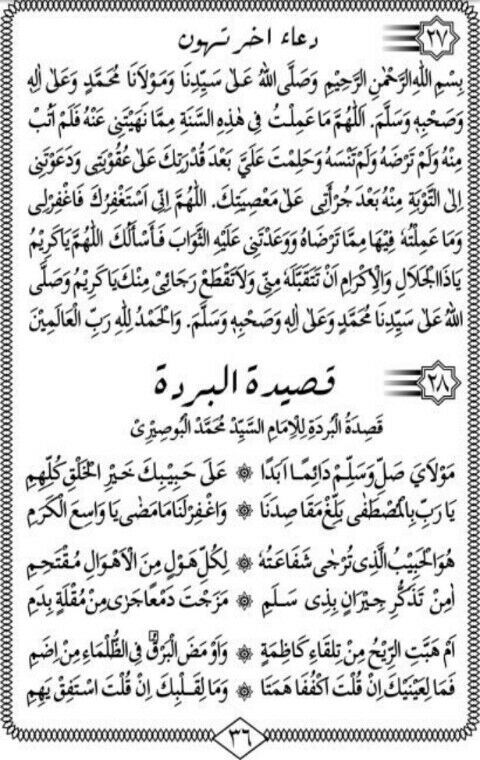 ٢٧ دعاء اخر تهون
بِسْمِ اللهِ الرَّحْمٰنِ الرَّحِيْمِ وَصَلَّى اللهُ عَلىٰ سَيِّدِنَا وَمَوْلَانَا مُحَمَّدٍ وَعَلىٰ اٰلِهِ
وَصَحْبِهِ وَسَلَّمَ. اَللّٰهُمَّ مَا عَمِلْتُ فِي هٰذِهِ السَّنَةِ مِمَّا نَهَيْتَنِي عَنْهُ فَلَمْ اَتُبْ
مِنْهُ وَلَمْ تَرْضَهُ وَلَمْ تَنْسَهُ وَحَلِمْتَ عَلَيَّ بَعْدَ قُدْرَتِكَ عَلىٰ عُقُوْبَتِي وَدَعَوْتَنِي
اِلىَ التَّوْبَةِ مِنْهُ بَعْدَ جُرْأَتِي عَلىٰ مَعْصِيَتِكَ. اَللّٰهُمَّ اِنِّي اَسْتَغْفِرُكَ فَاغْفِرْلِي
وَمَا عَمِلْتُهُ فِيْهَا مِمَّا تَرْضَاهُ وَوَعَدْتَنِي عَلَيْهِ الثَّوَابَ فَأَسْأَلُكَ اللّٰهُمَّ يَاكَرِيْمُ
يَاذَا الْجَلَالِ وَالْاِكْرَامِ اَنْ تَتَقَبَّلَهُ مِنِّي وَلَا تَقْطَعْ رَجَائِي مِنْكَ يَاكَرِيْمُ وَصَلَّى
اللهُ عَلىٰ سَيِّدِنَا مُحَمَّدٍ وَعَلىٰ اٰلِهِ وَصَحْبِهِ وَسَلَّمَ. وَالْحَمْدُ لِلّٰهِ رَبِّ الْعَالَمِيْنَ
٢٨ قصيدة البردة
قَصِدَةُ الْبُرْدَةِ لِلْاِمَامِ السَّيِّدِ مُحَمَّدْ الْبُوصِيْرِىْ
مَوْلَايَ صَلِّ وَسَلِّمْ دَائِمًا اَبَدًا ۞ عَلىٰ حَبِيْبِكَ خَيْرِ الْخَلْقِ كُلِّهِمِ
يَا رَبِّ بِالْمُصْطَفٰى بَلِّغْ مَقَاصِدَنَا ۞ وَاغْفِرْ لَنَا مَا مَضٰى يَا وَاسِعَ الْكَرَمِ
هُوَ الْحَبِيْبُ الَّذِي تُرْجٰى شَفَاعَتُهُ ۞ لِكُلِّ هَوْلٍ مِنَ الْاَهْوَالِ مُقْتَحِمِ
اَمِنْ تَذَكُّرِ جِيْرَانٍ بِذِي سَلَمِ ۞ مَزَجْتَ دَمْعًا جَرٰى مِنْ مُقْلَةٍ بِدَمِ
اَمْ هَبَّتِ الرِّيْحُ مِنْ تِلْقَاءِ كَاظِمَةٍ ۞ وَاَوْمَضَ الْبَرْقُ فِي الظُّلْمَاءِ مِنْ اِضَمِ
فَمَا لِعَيْنَيْكَ اِنْ قُلْتَ اكْفُفَا هَمَتَا ۞ وَمَا لِقَلْبِكَ اِنْ قُلْتَ اسْتَفِقْ يَهِمِ
٣٦